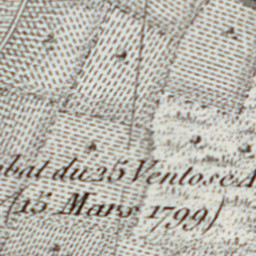 bat du 25 Ventose A
(15 Mars 1799)